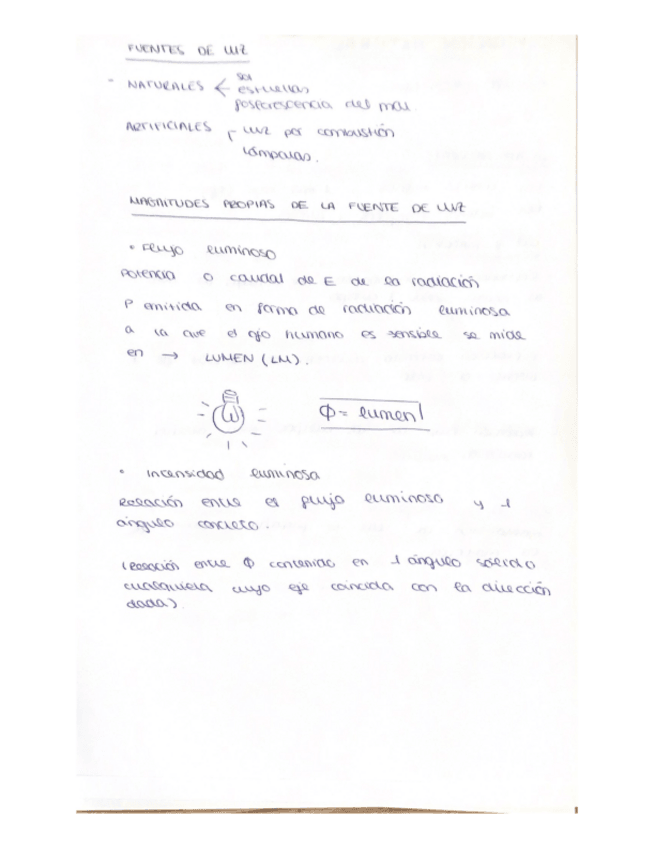 FUENTES DE LUZ
- NATURALES < sol
estrellas
fosforescencia del mar.
ARTIFICIALES luz por combustión
lámparas.
MAGNITUDES PROPIAS DE LA FUENTE DE LUZ
• Flujo luminoso
Potencia o caudal de E de la radiación
P emitida en forma de radiación luminosa
a la que el ojo humano es sensible se mide
en → LUMEN (LM).
Φ = lumen
• Intensidad luminosa
Relación entre el flujo luminoso y 1
ángulo concreto.
(Relación entre Φ contenido en 1 ángulo sólido
cualquiera cuyo eje coincida con la dirección
dada).